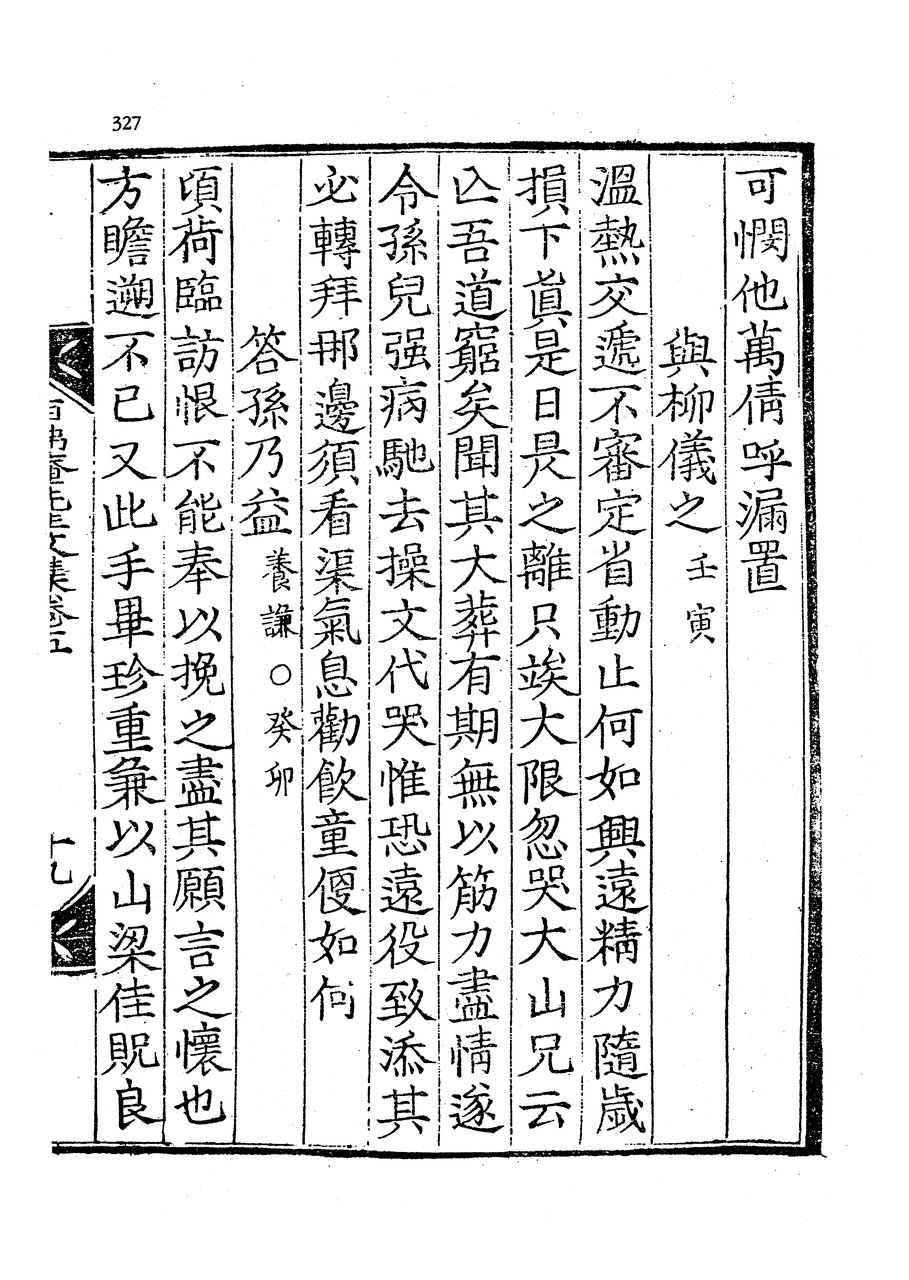 327
可憫他萬倩呼漏置
與柳儀之 壬寅
溫熱交遞不審定省動止何如興遠精力隨歲
損下眞是日昃之離只竢大限忽哭大山兄云
亾吾道窮矣聞其大葬有期無以筋力盡情遂
令孫兒强病馳去操文代哭惟恐遠役致添其
必轉拜那邊須看渠氣息勸飮童便如何
答孫乃益 養謙○癸卯
頃荷臨訪恨不能奉以挽之盡其願言之懷也
方瞻遡不已又此手畢珍重兼以山梁佳貺良
百弗庵先生文集卷五
十九